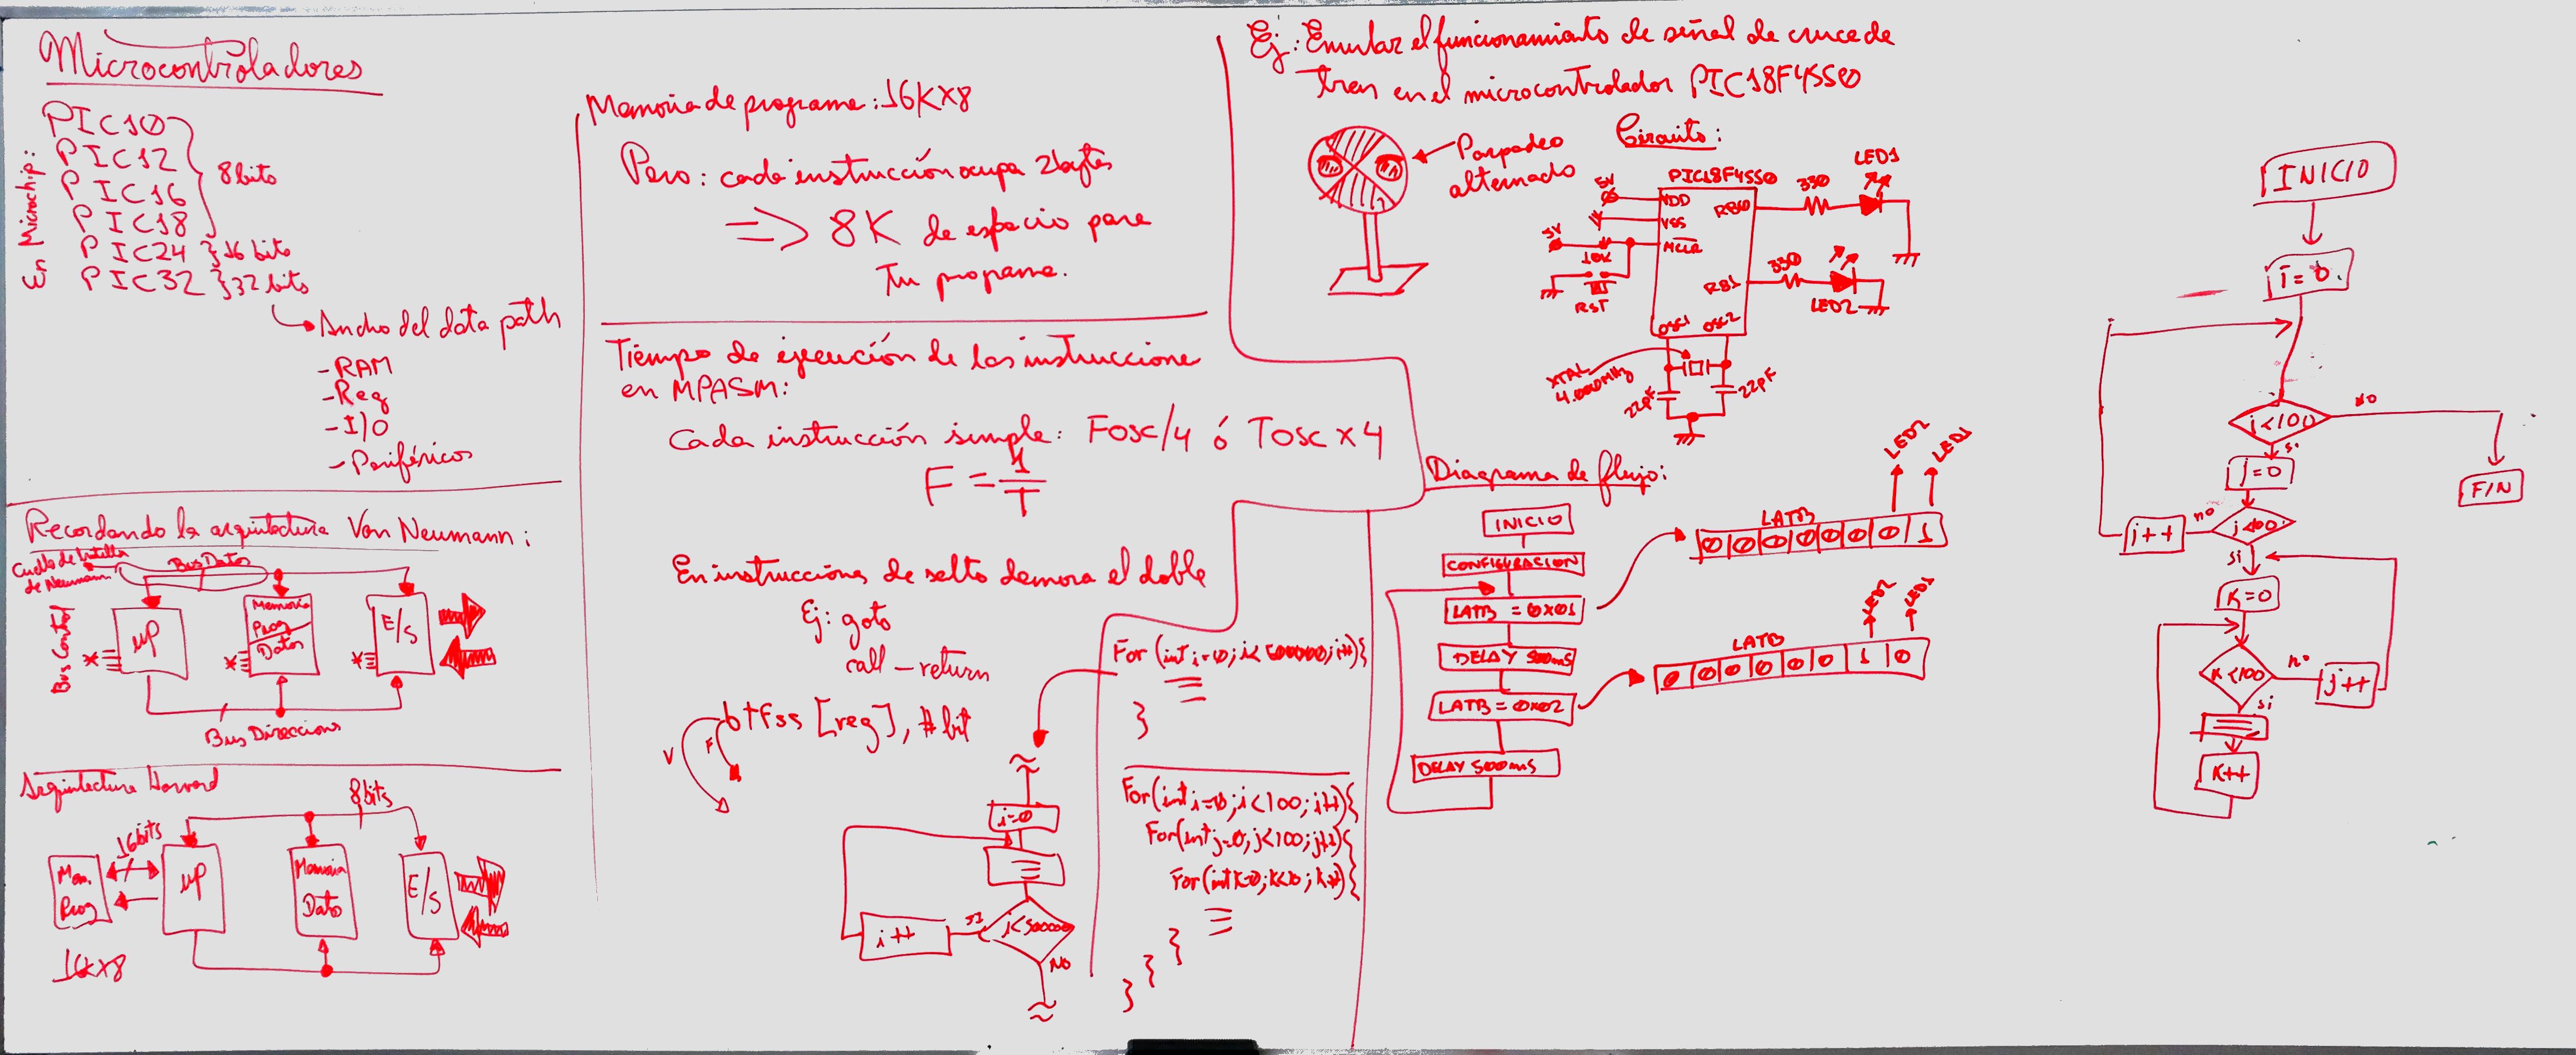 Microcontroladores
En Microchip:
PIC10
PIC12
PIC16
PIC18
8bits
PIC24 }16 bits
PIC32 }32 bits
Ancho del data path
-RAM
-Reg
-I/O
-Periféricos
Recordando la arquitectura Von Neumann:
Cuello de botella
de Neumann
Bus Datos
Bus Control
µP
Memoria
Prog
Datos
E/S
Bus Direcciones
Arquitectura Harvard
8bits
16bits
Mem.
Prog
µP
Memoria
Datos
E/S
16kx8
Memoria de programa: 16KX8
Pero: cada instrucción ocupa 2bytes
=> 8K de espacio para
tu programa.
Tiempo de ejecución de las instrucciones
en MPASM:
Cada instrucción simple: Fosc/4 ó Tosc x 4
F = 1/T
En instrucciones de salto demora el doble
Ej: goto
call - return
btfss [reg], #bit
V
F
i=0
i++
SI
i<500000
NO
For (int i=0; i<500000; i++){
}
For(int i=0; i<100; i++){
For(int j=0; j<100; j++){
For(int k=0; k<10; k++){
}
}
}
Ej: Emular el funcionamiento de señal de cruce de
tren en el microcontrolador PIC18F4550
Parpadeo
alternado
Circuito:
PIC18F4550
5V
VDD
VSS
5V
10K
MCLR
RST
RB0
330
LED1
RB1
330
LED2
OSC1
OSC2
XTAL
4.000MHz
22pF
22pF
Diagrama de flujo:
INICIO
CONFIGURACION
LATB = 0x01
DELAY 500ms
LATB = 0x02
DELAY 500ms
LED2
LED1
LATB
0 0 0 0 0 0 0 1
LED2
LED1
LATB
0 0 0 0 0 0 1 0
INICIO
i=0
i<100
no
si
FIN
j=0
i++
no
j<100
si
k=0
k<100
no
j++
si
k++